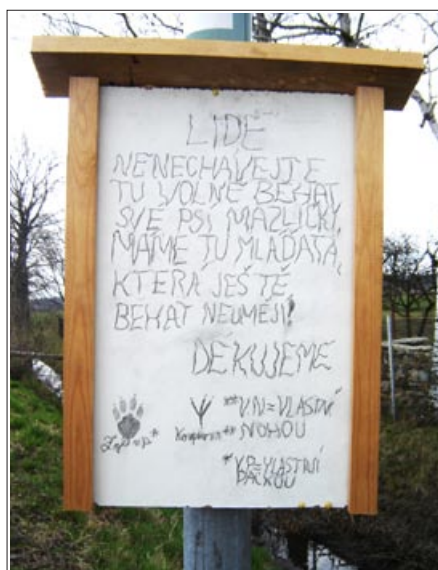 LIDÉ
NENECHÁVEJTE
TU VOLNĚ BĚHAT
SVÉ PSÍ MAZLÍČKY,
MÁME TU MLÁĎATA,
KTERÁ JEŠTĚ
BĚHAT NEUMĚJÍ!
DĚKUJEME
**V.N=VLASTNÍ
NOHOU
*V.P=VLASTNÍ
PACKOU